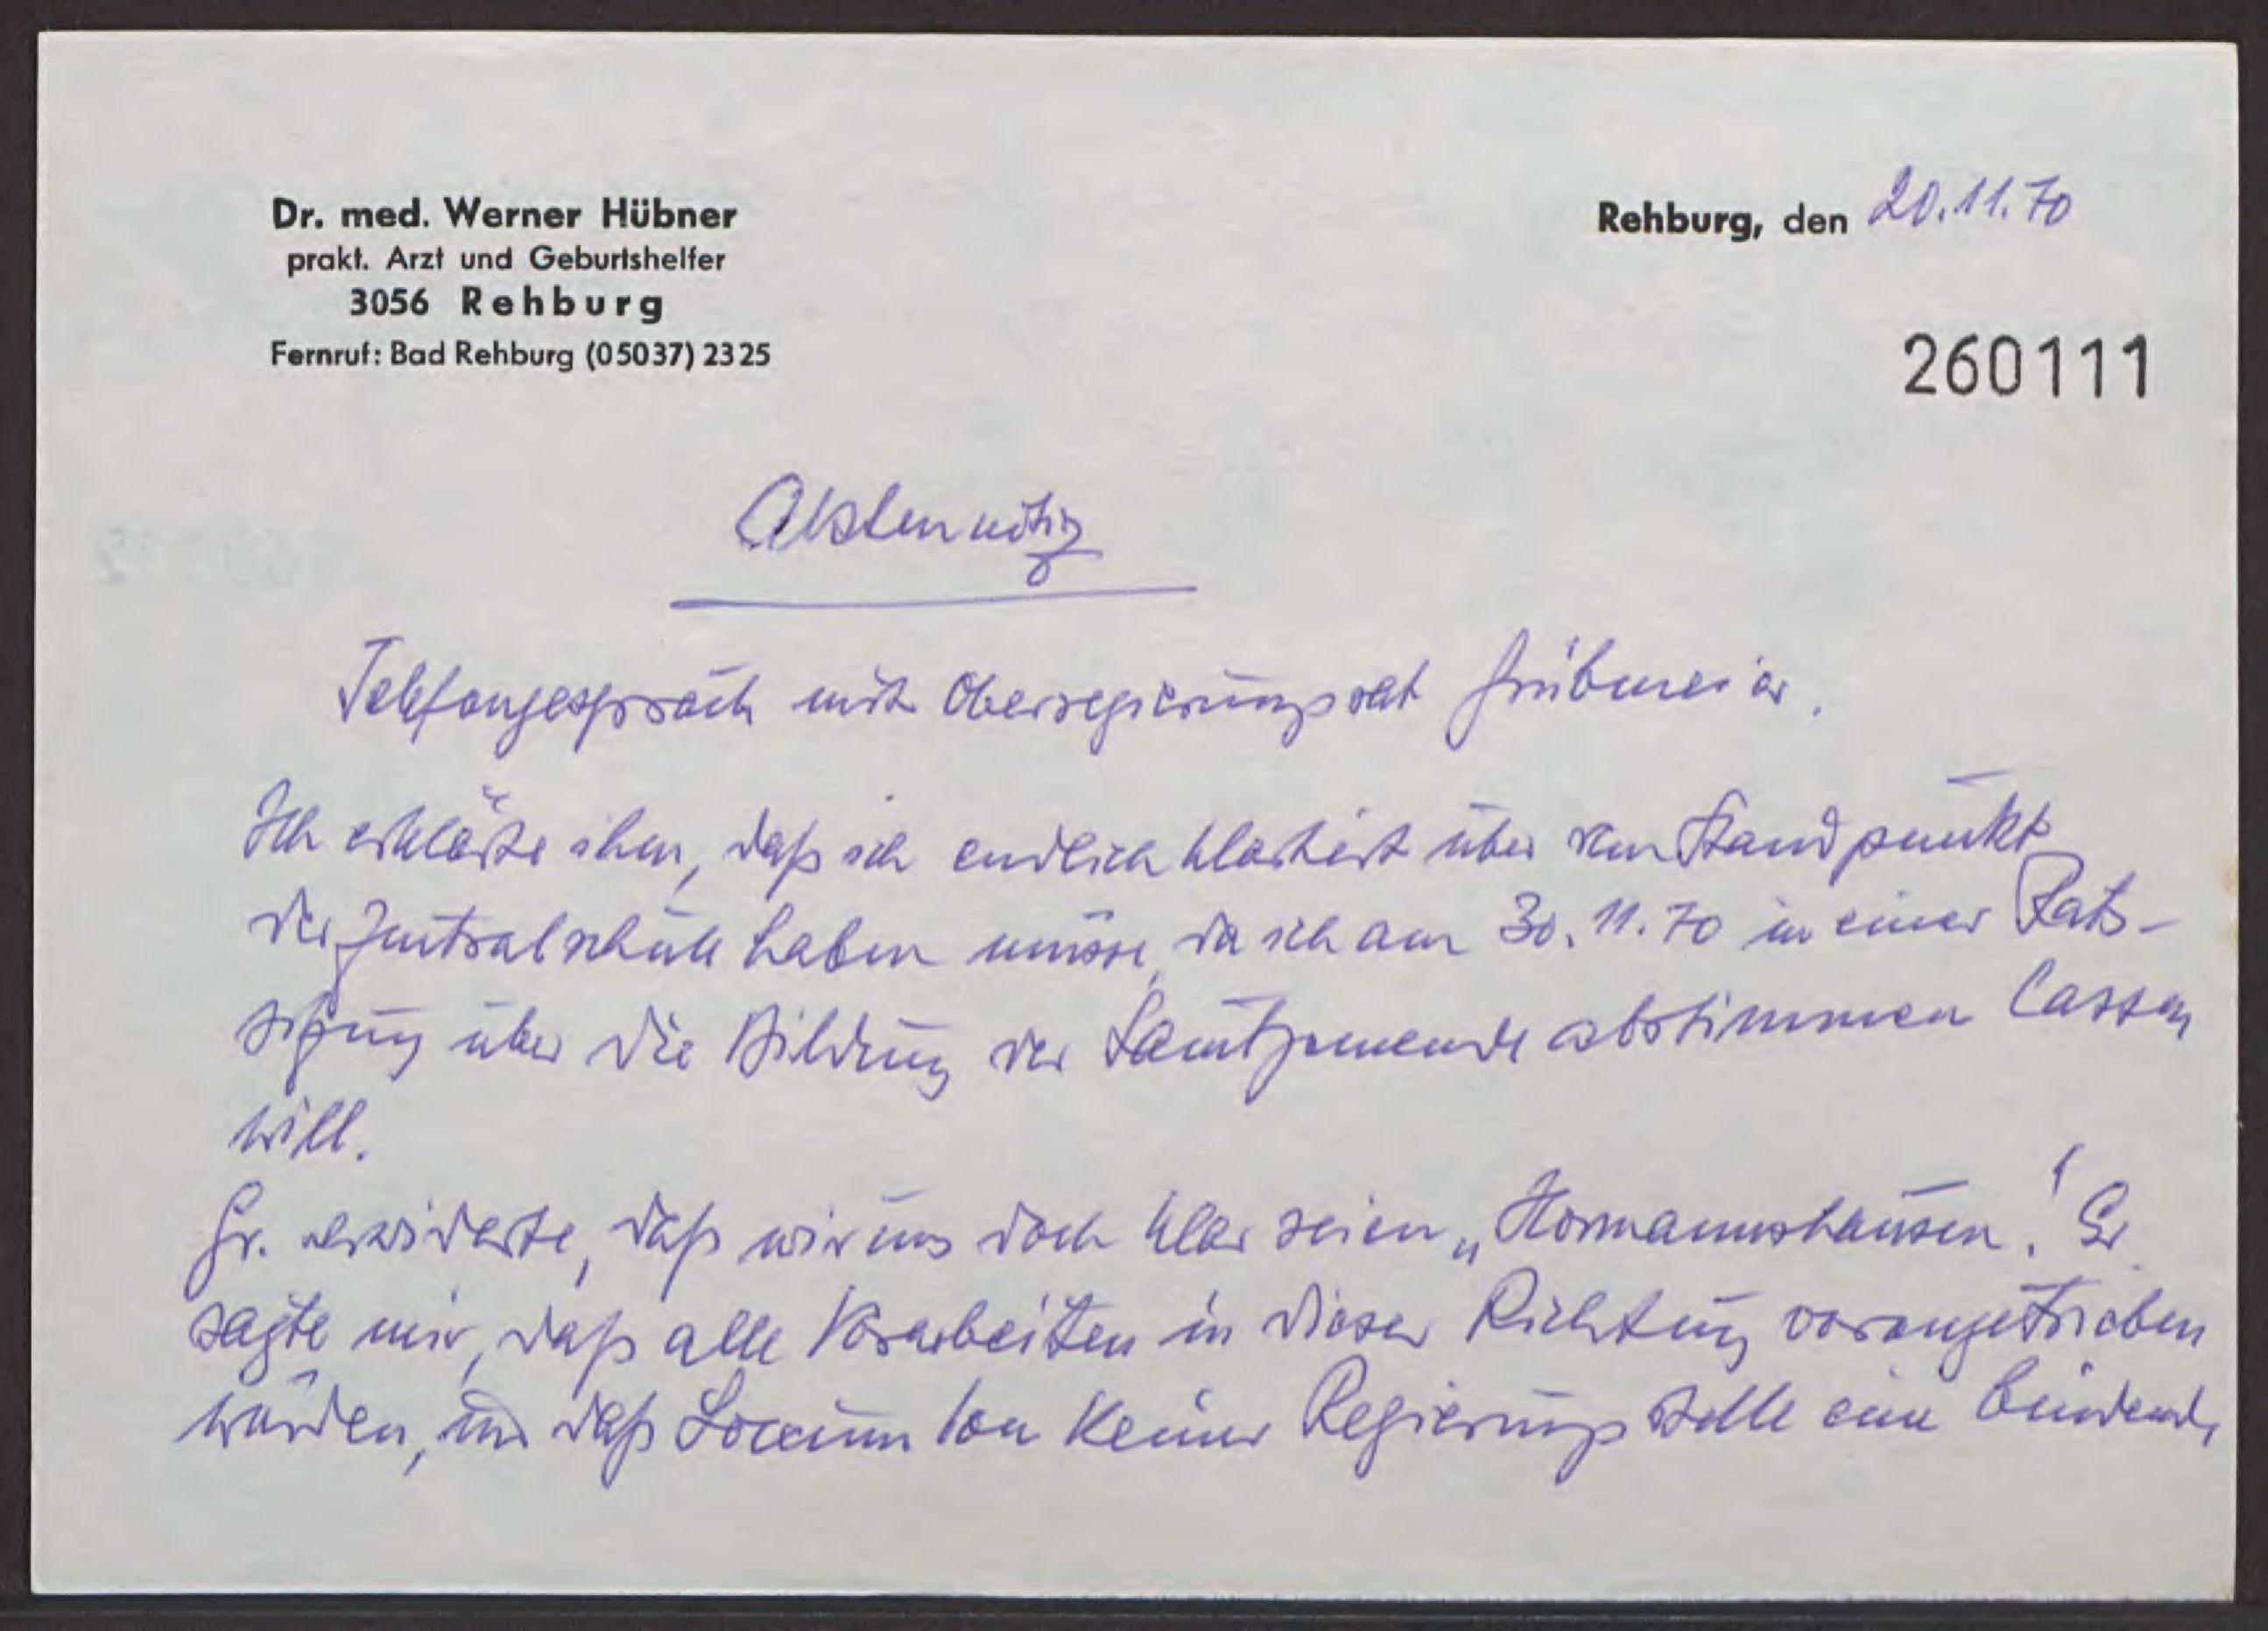 Dr. med. Werner Hübner
prakt. Arzt und Geburtshelfer
3056 Rehburg
Fernruf: Bad Rehburg (05037) 2325
Rehburg, den 20.11.70
260111
Aktennotiz
Telefongespräch mit Oberregierungsrat Grübmeier.
Ich erklärte ihm, daß ich endlich Klarheit über den Standpunkt
der Zentralschule haben müsse, da ich am 30.11.70 in einer Rats-
sitzung über die Bildung der Samtgemeinde abstimmen lassen
will.
Gr. erwiderte, daß wir uns doch klar seien „Hormannshausen“! Er
sagte mir, daß alle Vorarbeiten in dieser Richtung vorangetrieben
würden, und daß Loccum von keiner Regierungsstelle eine bindende